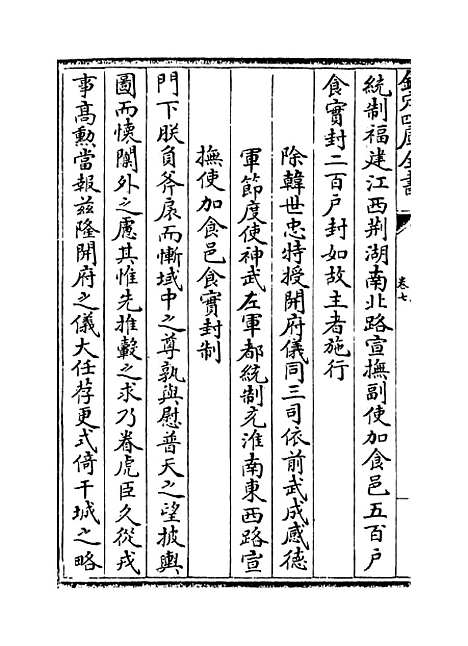 欽定四庫全書
卷七
統制福建江西荆湖南北路宣撫副使加食邑五百户
食實封二百户封如故主者施行
除韓世忠特授開府儀同三司依前武成感德
軍節度使神武左軍都統制充淮南東西路宣
撫使加食邑食實封制
門下朕負斧扆而慚域中之尊孰與慰普天之望披輿
圖而懐閫外之慮其惟先推轂之求乃眷虎臣久從戎
事髙勲當報兹隆開府之儀大任荐更式倚干城之略